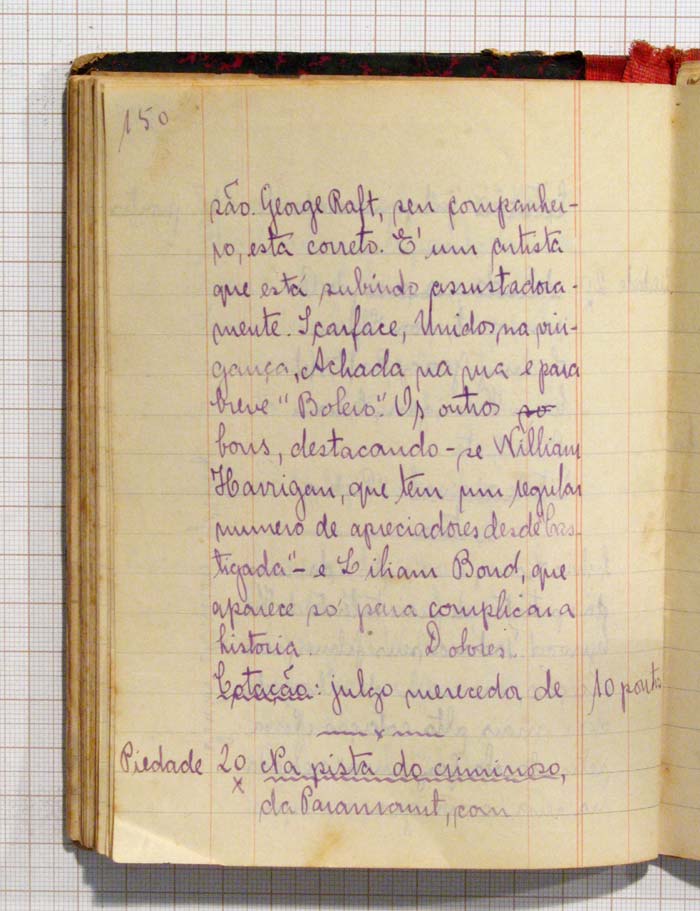 150
são. George Raft, seu companhei-
ro, está correto. E' um artista
que está subindo assustadora-
mente. Scarface, Unidos na vin-
gança, Achada na rua e para
breve "Bolero". Os outros
bons, destacando-se William
Harrigan, que tem um regular
numero de apreciadores desde "Cas-
tigada" - e Liliam Bond, que
aparece só para complicar a
historia Dolores.
Cotação: julgo merecedor de 10 pontos
Piedade 20 Na pista do criminoso,
x
da Paramount, com